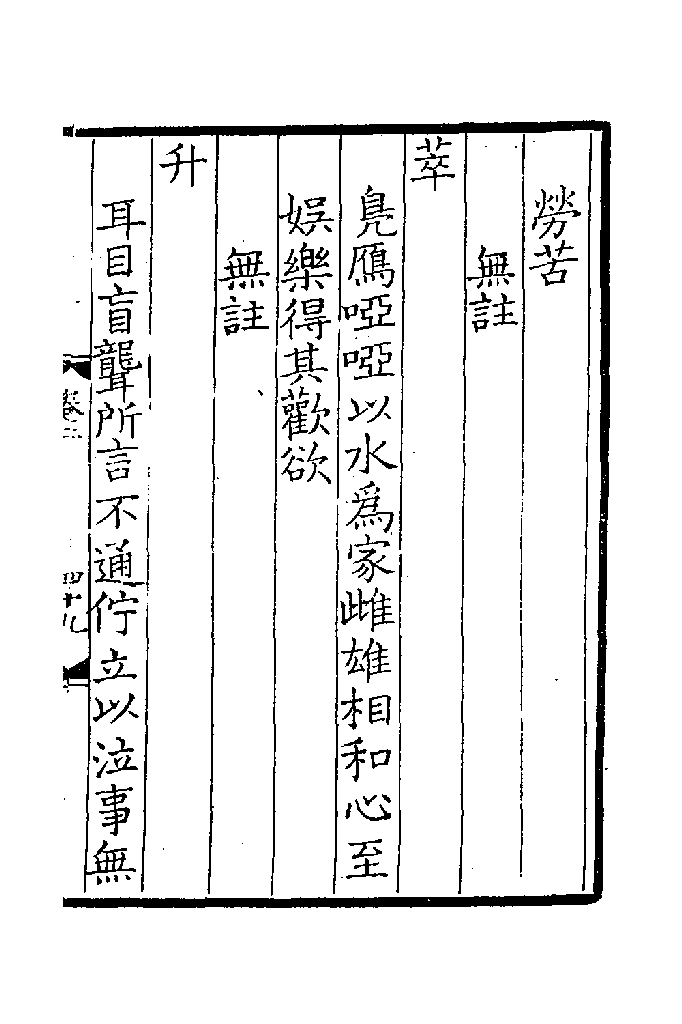 勞苦
無註
萃
鳬鴈啞啞以水爲家雌雄相和心至
娛樂得其歡欲
無註
升
耳目盲聾所言不通佇立以泣事無
卷三
四十九